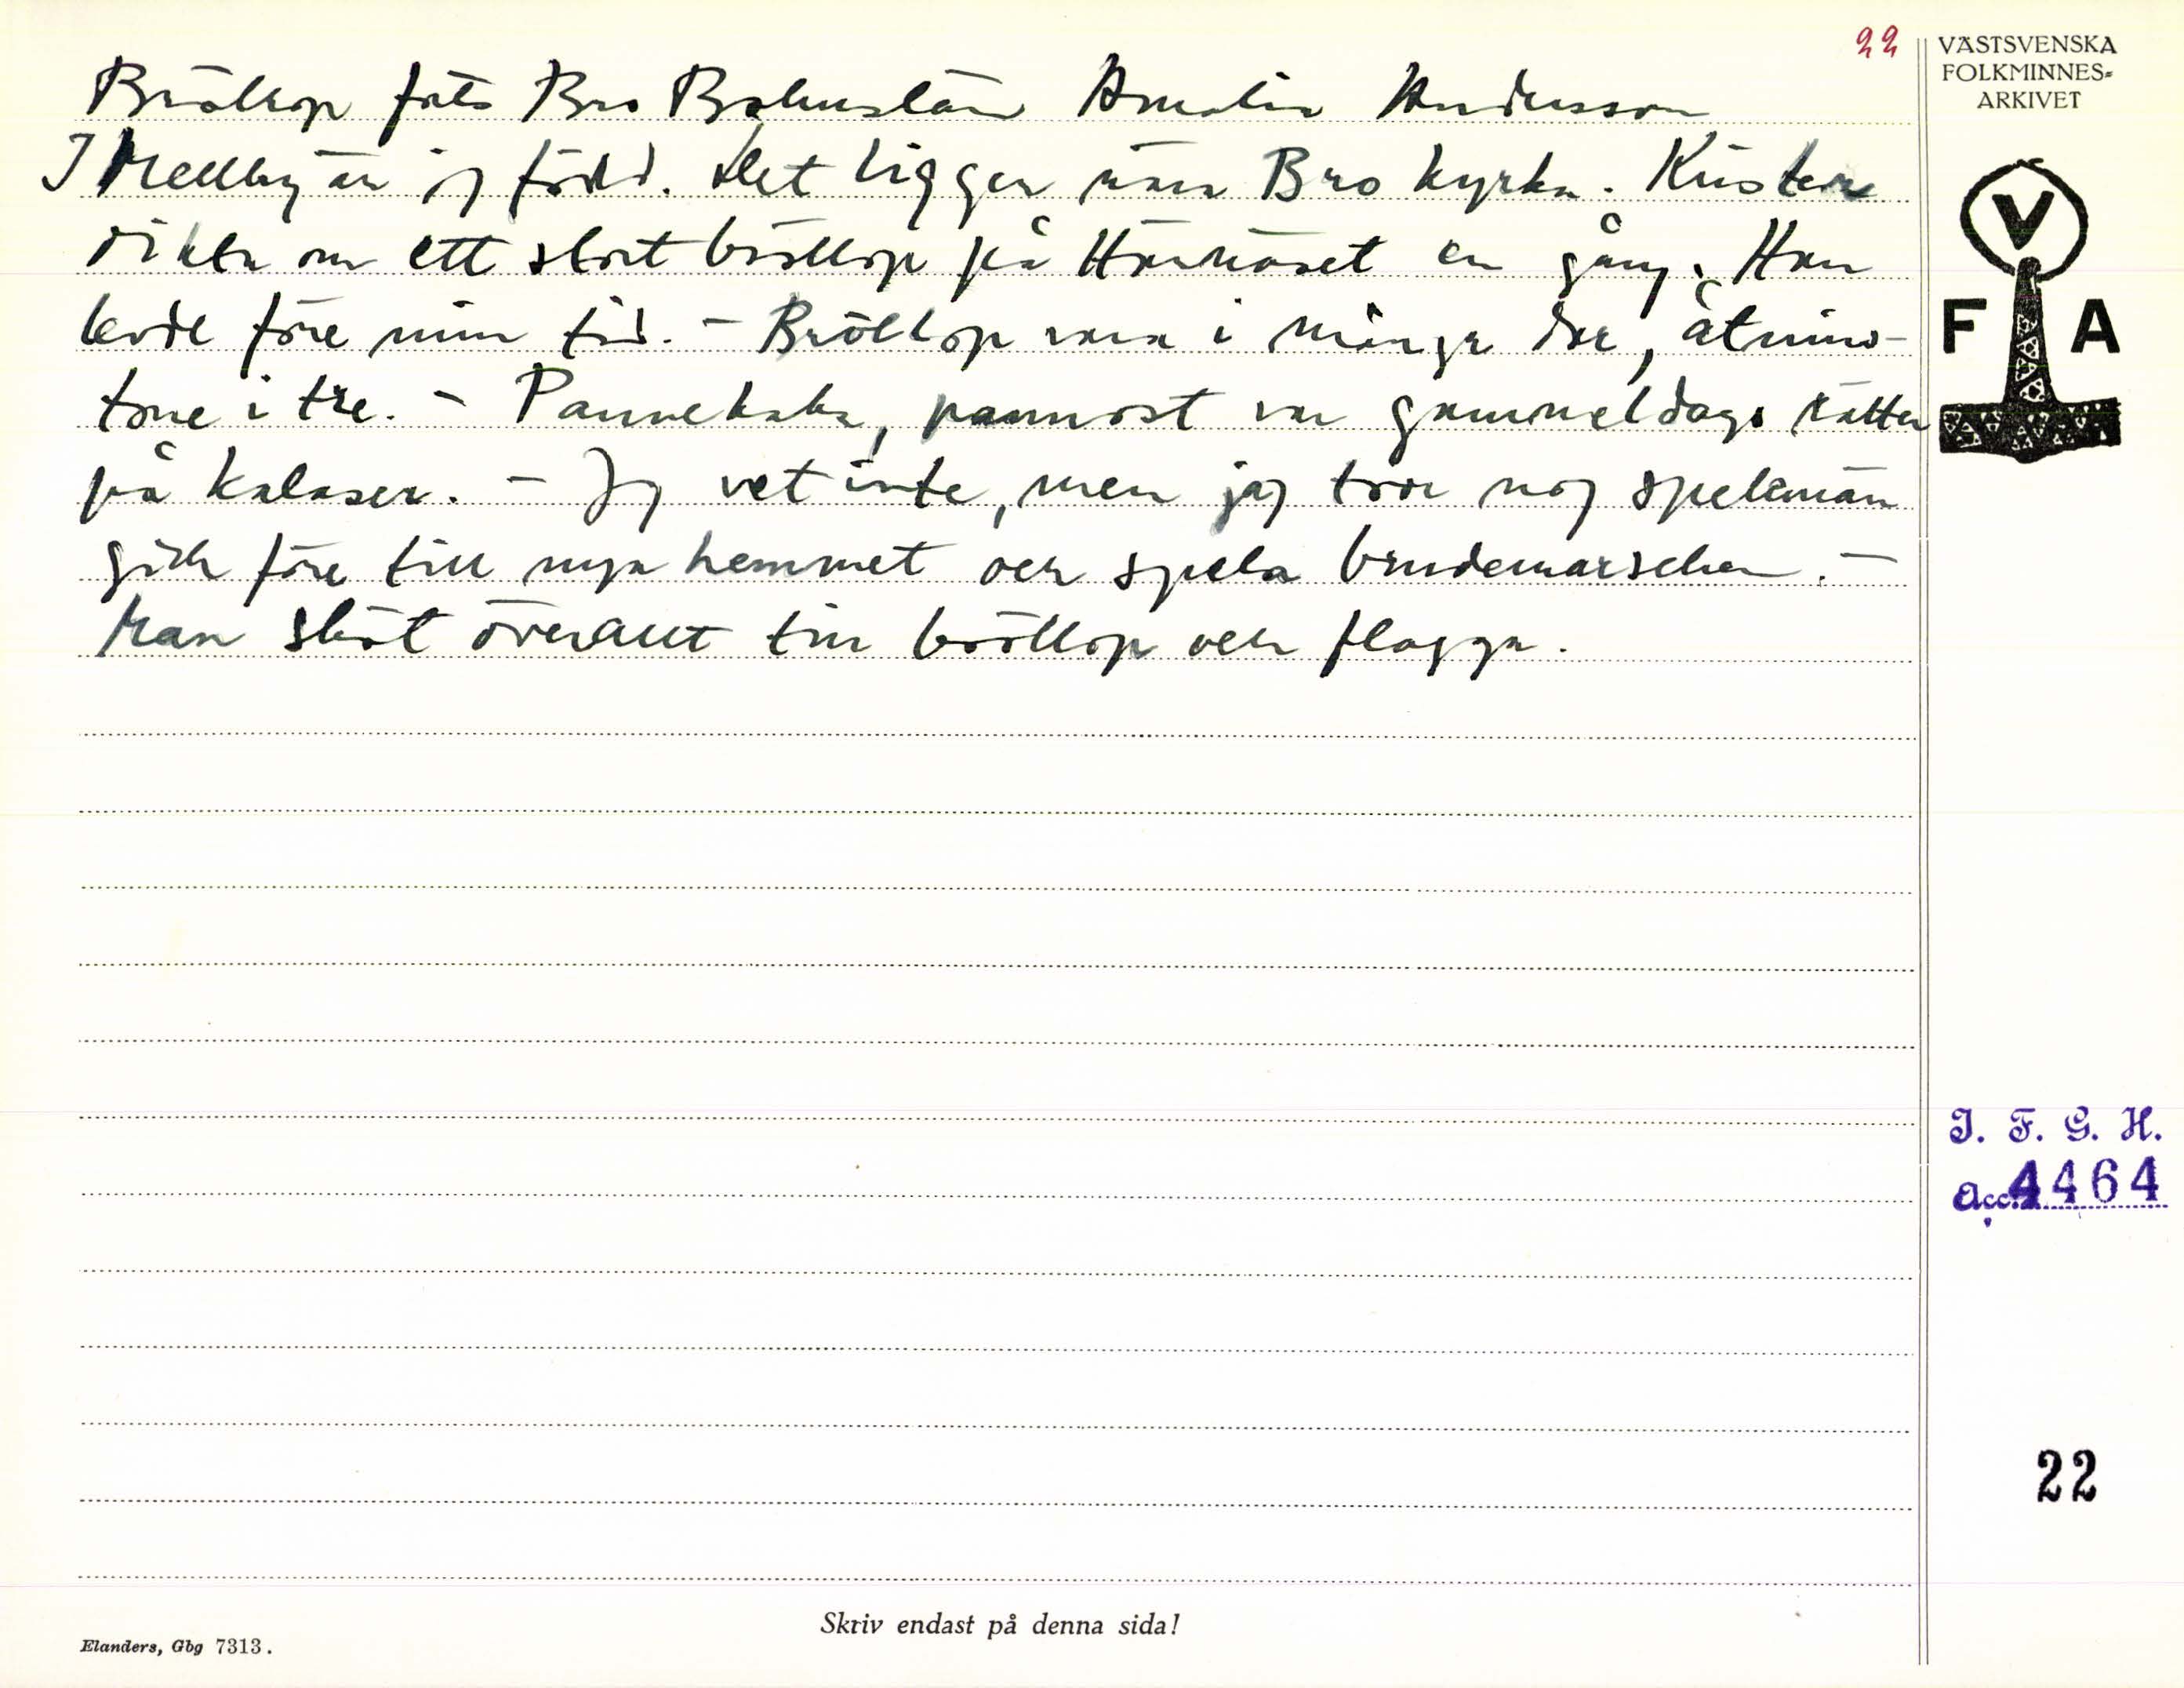 22
VÄSTSVENSKA
FOLKMINNES-
ARKIVET
Bröllop fält Bro Bohuslän Amalia Andersson
I Mellby är jg född. Det ligger nära Bro kyrka. Küster
dikta om ett stort bröllop på en gång. Han
levde före min tid. – Bröllop vara i många dar, åtmins-
tone i tre. – Pannekaka, pannost var gammeldags rätter
på kalaser. – Jg vet inte, men jag tror nog spelemän
gick före till nya hemmet och spela brudemarschen. –
Man sköt överallt till bröllop och flagga.
V
F A
I. F. G. H.
Acc. 4464
22
Skriv endast på denna sida!
Elanders, Gbg 7313.